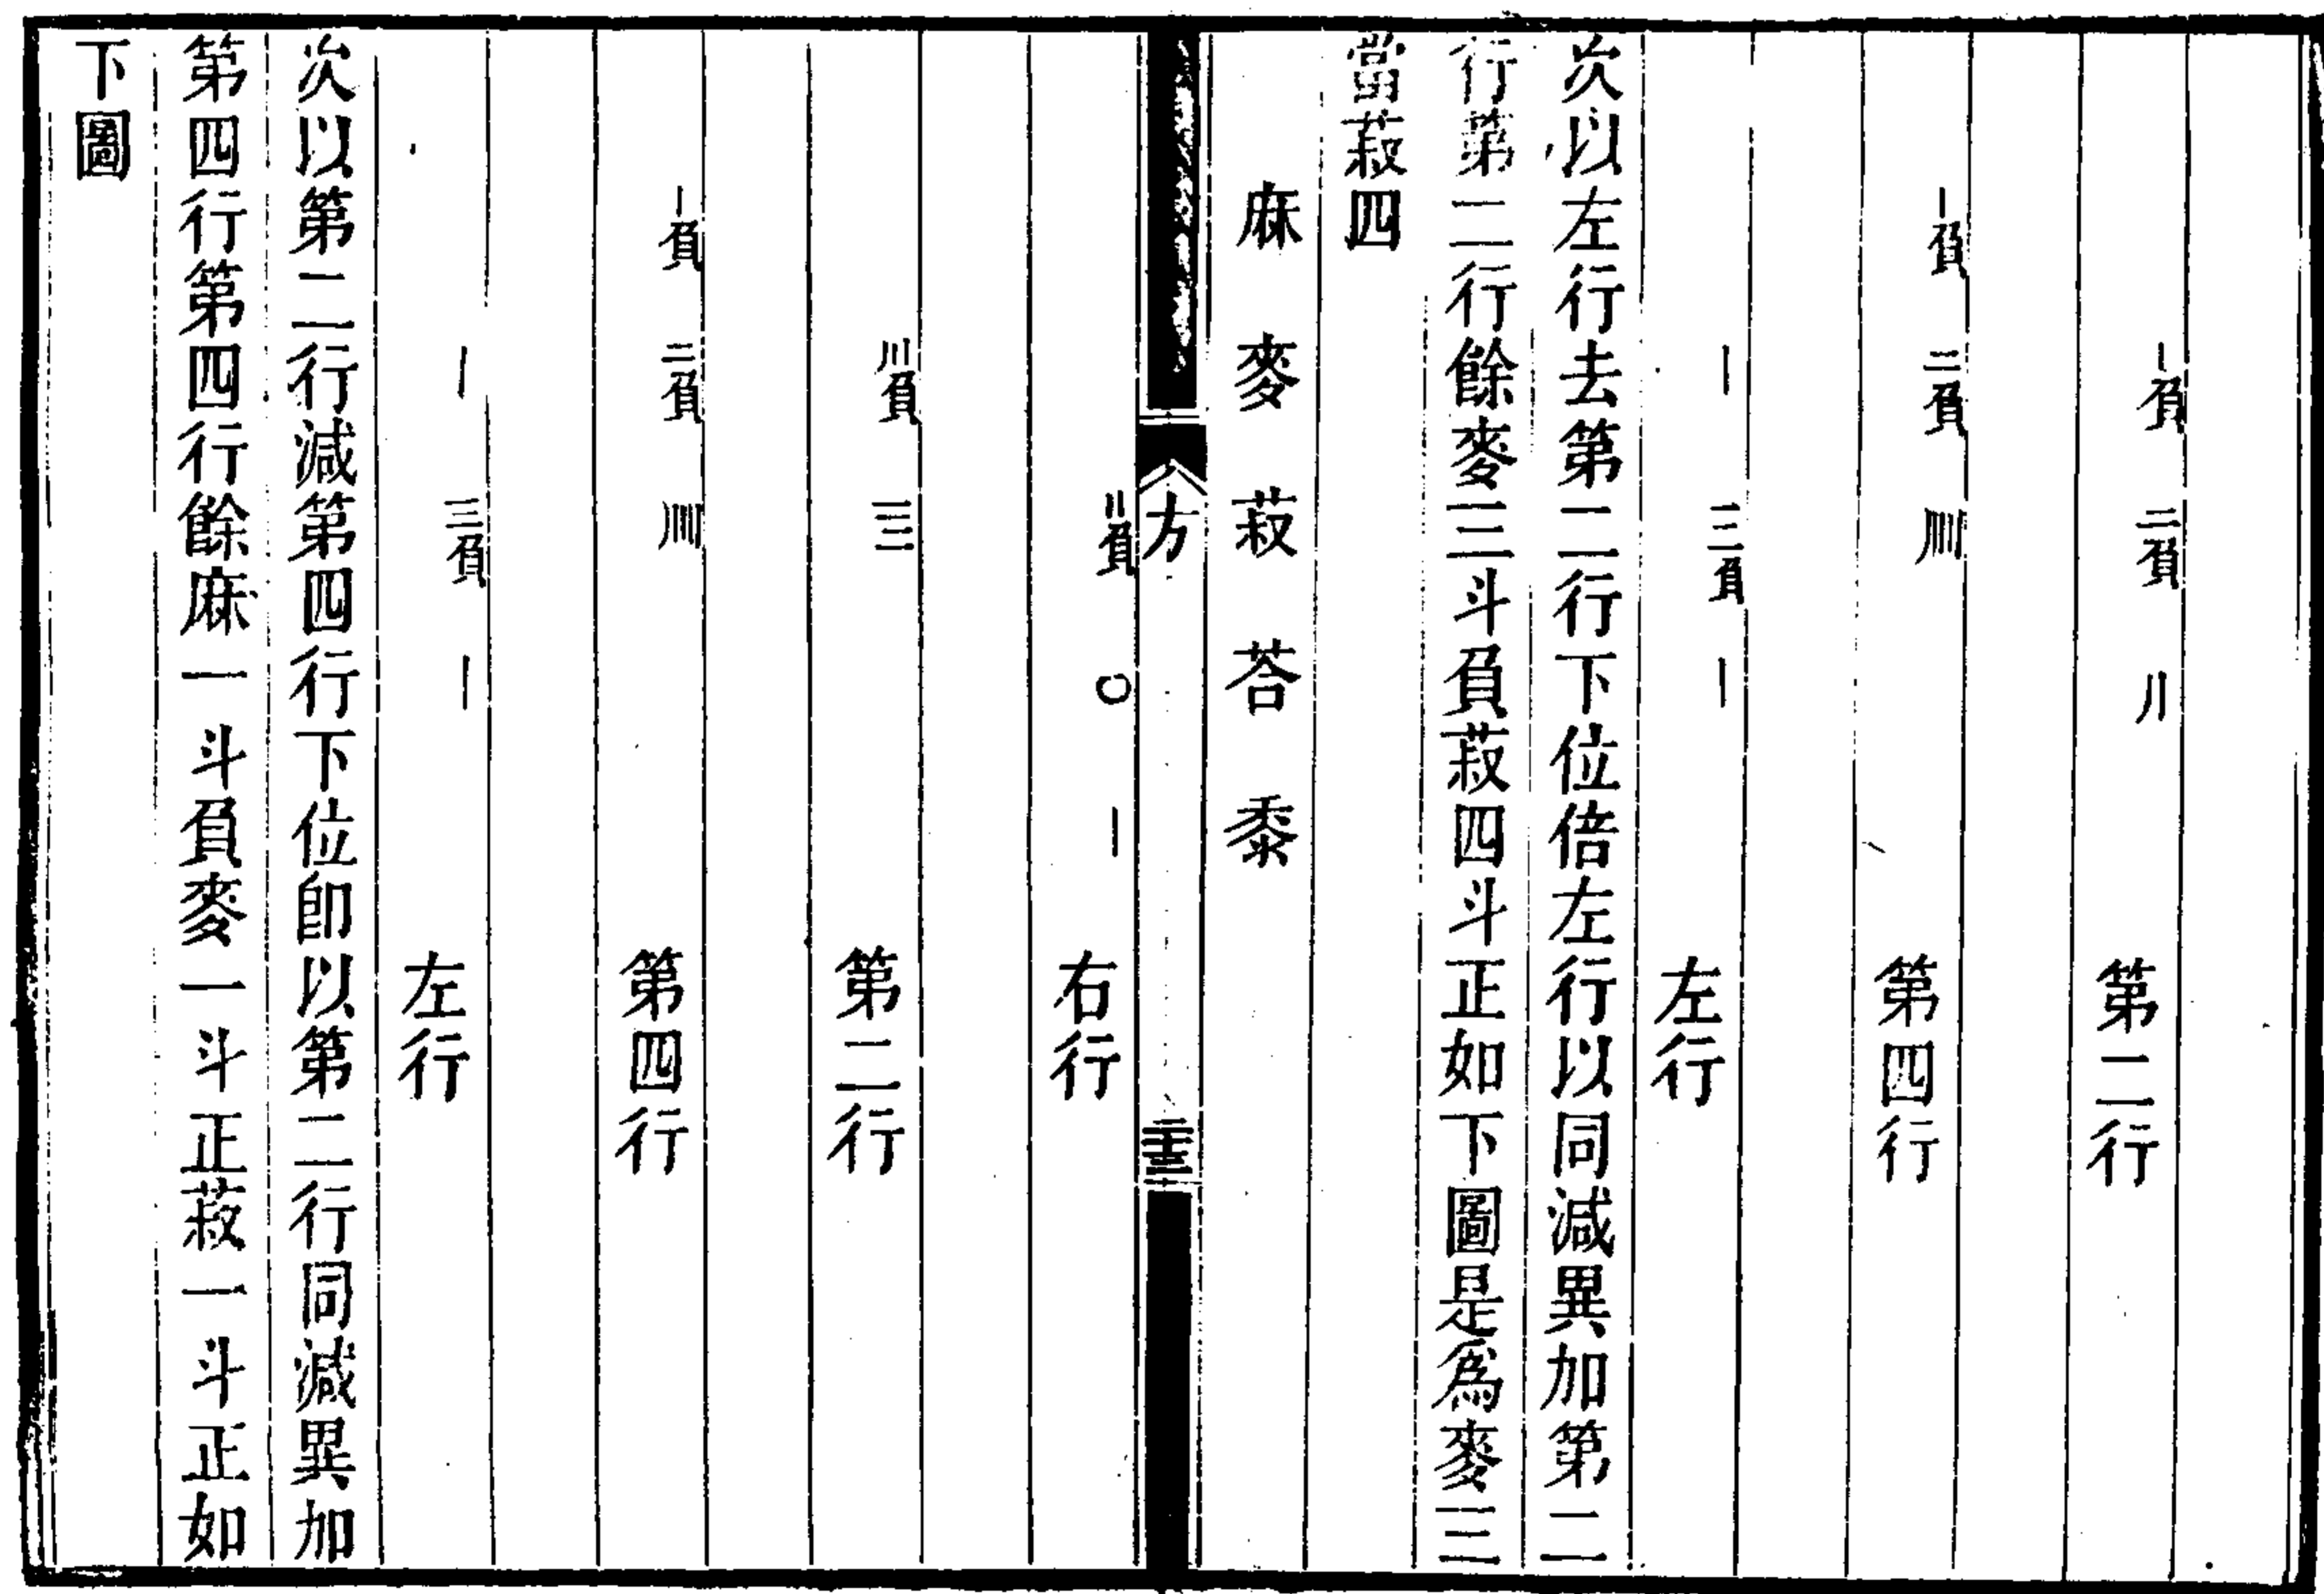 |負　二負　||　第二行
|負　二負　|||||　第四行
|　三負　|　左行
次以左行去第二行下位倍左行以同減異加第二
行第二行餘麥三斗負菽四斗正如下圖是為麥三
當菽四
麻　麥　菽　荅　黍
方　二十三
||負　〇　|　右行
|||負　亖　第二行
|負　二負　|||||　第四行
|　三負　|　左行
次以第二行減第四行下位卽以第二行同減異加
第四行第四行餘麻一斗負麥一斗正菽一斗正如
下圖